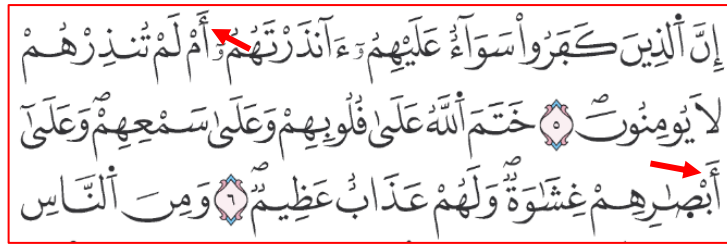 إِنَّ ٱلذِينَ كَفَرُواْ سَوَآءٌ عَلَيْهِمُۥٓ ءَآنذَرْتَهُمُۥٓ أَمْ لَمْ تُنذِرْهُمْ
لَا يُومِنُونَۖ ٥ خَتَمَ ٱللَّهُ عَلَىٰ قُلُوبِهِمْ وَعَلَىٰ سَمْعِهِمْۖ وَعَلَىٰٓ
أَبْصَٰرِهِمْ غِشَٰوَةٌۖ وَلَهُمْ عَذَابٌ عَظِيمٌۖ ٦ وَمِنَ ٱلنَّاسِ